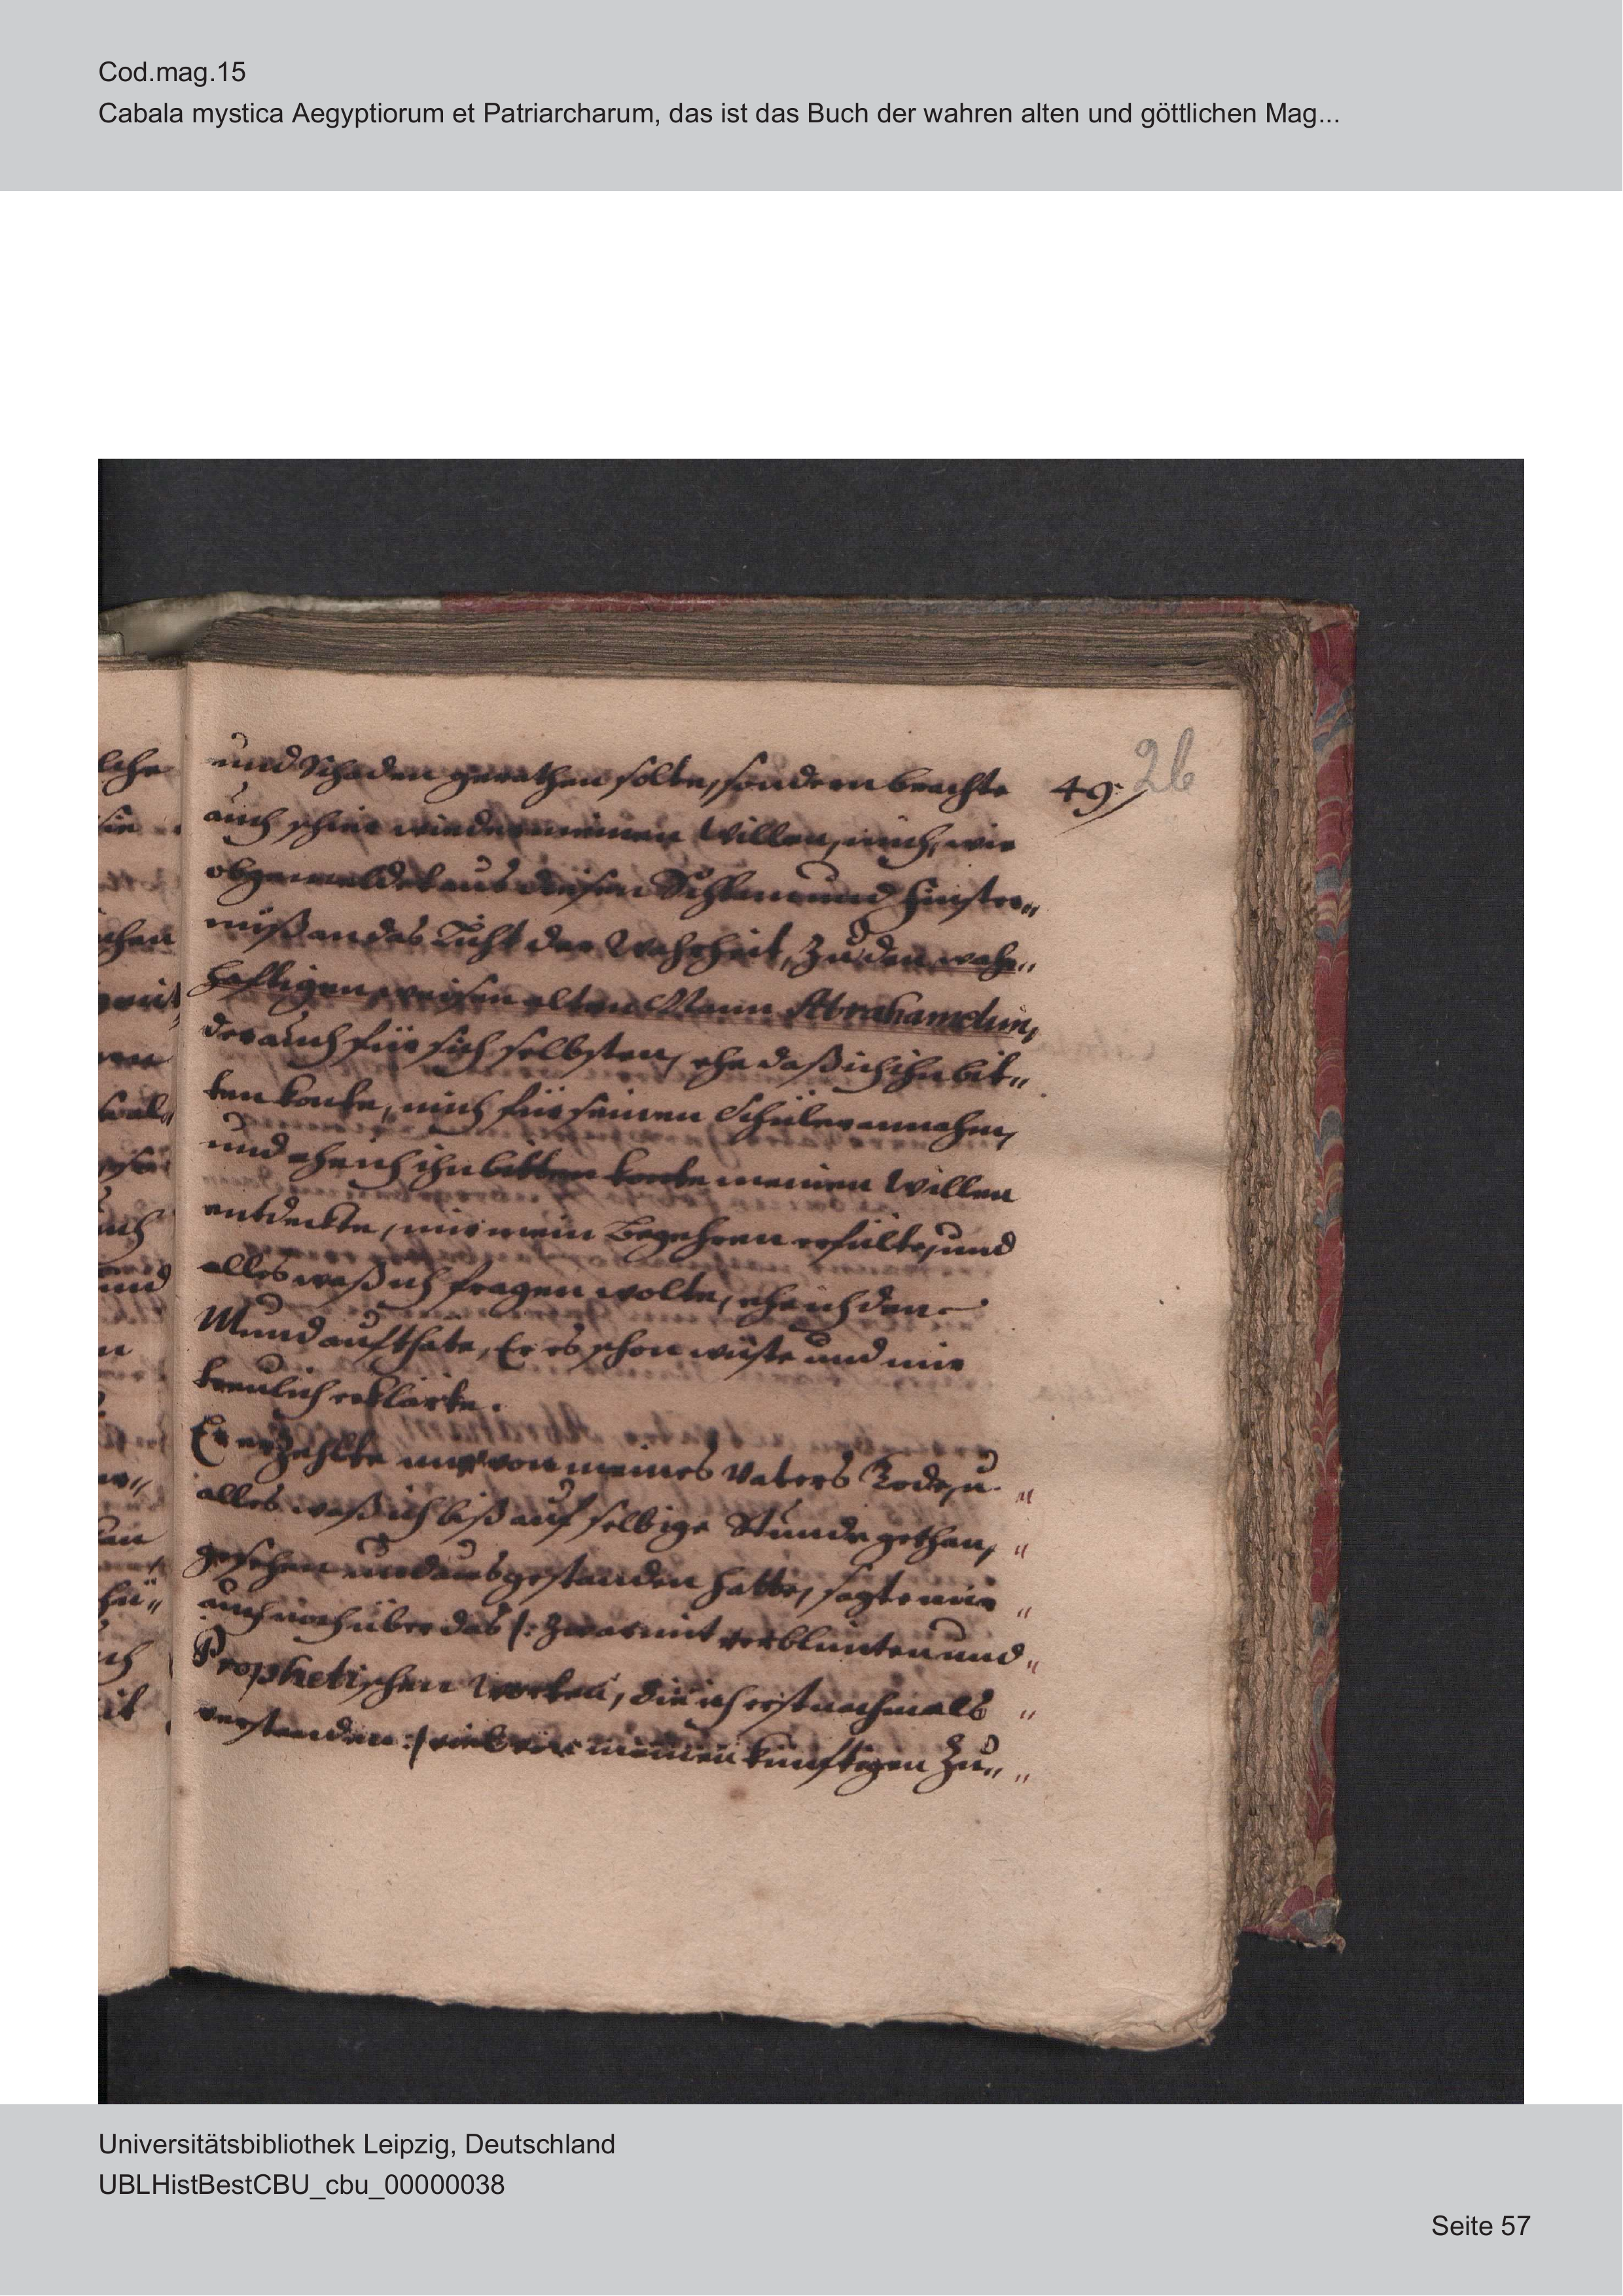 Cod.mag.15
Cabala mystica Aegyptiorum et Patriarcharum, das ist das Buch der wahren alten und göttlichen Mag...
26
49.
und Schaden gerathen solte, sondern brachte
auch schier wieder meinen Willen, mich, wie
obgemeldet aus diesen Schlam und Finster„
nüß an das Licht der Wahrheit, zu den wahr„
hafftigen, weisen alten Mann Abrahamelim,
der auch für sich selbsten, ehe daß ich ihn bit„
ten konte, mich für seinen Schüler annahm,
und ehe ich ihn bitten konte meinen Willen
entdeckte, mir mein Begehren erfülte, und
alles waß ich fragen wolte, ehe ich den
Mund aufthate, Er es schon wuste und mir
treulich erklärte.
Er erzehlte mir von meines Vaters Tode, u.
alles waß ich biß auf selbige Stunde gethan,
gesehen und ausgestanden hatte, sagte mir
auch noch über das /: zwar mit verblümten und
Prophetischen Worten, die ich erst nachmals
verstanden :/ viel von meinen künfftigen Zu„
Universitätsbibliothek Leipzig, Deutschland
UBLHistBestCBU_cbu_00000038
Seite 57